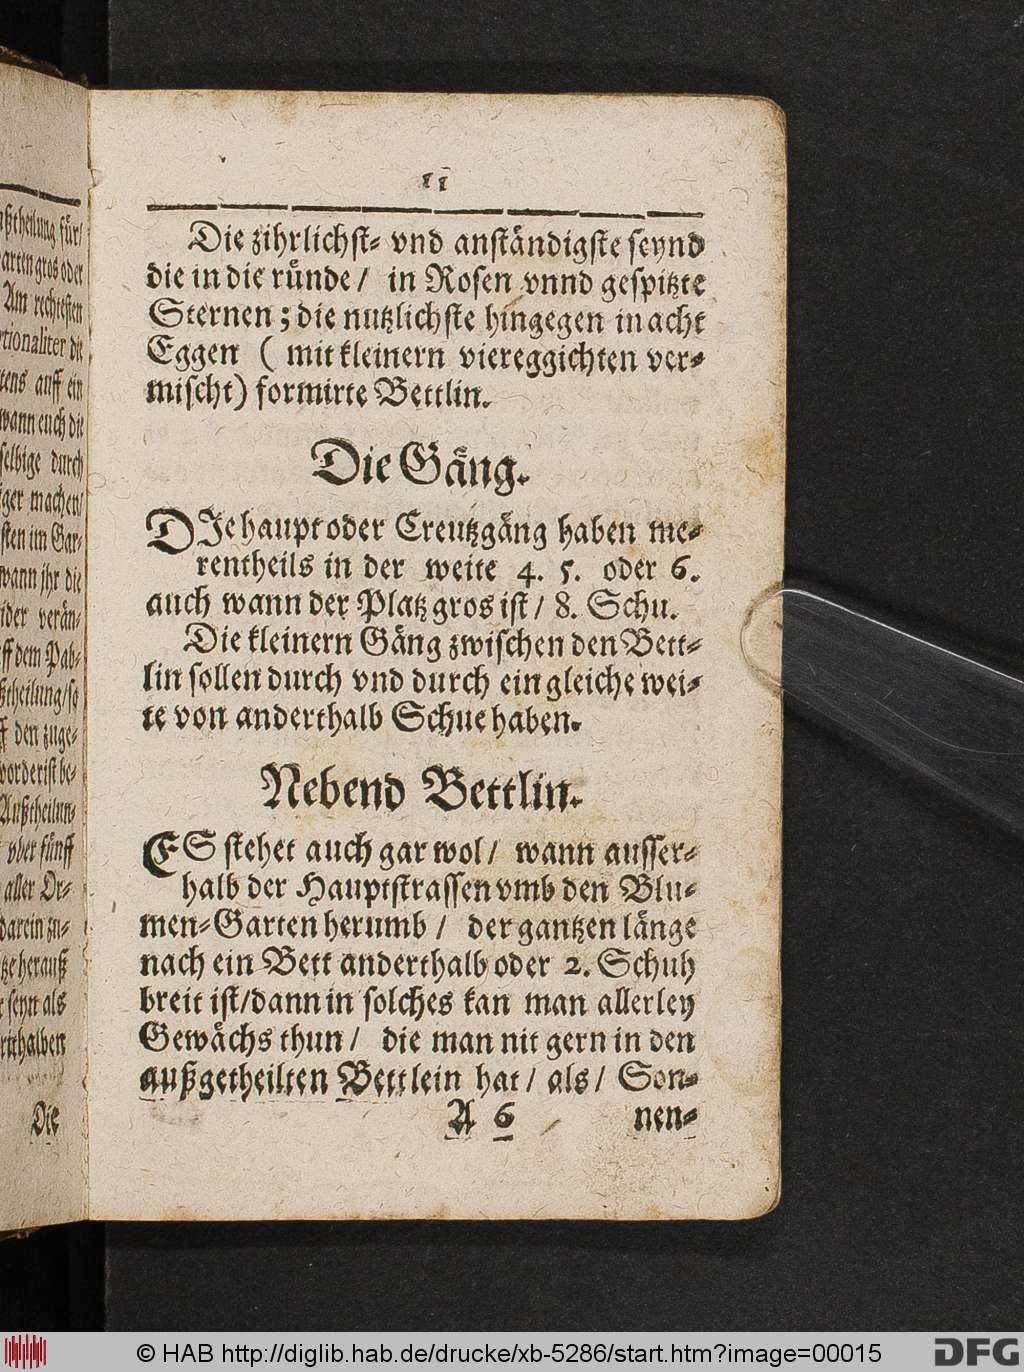 aßtheilung für/
arten gros oder
Am rechtesten
rtionaliter die
tens auff ein
wann euch die
selbige durch
ger machen/
sten im Gar-
wann jhr die
ider verän-
ff dem Pab-
ßtheilung/so
ff den zuge-
vorderist be-
Außtheilun-
vber fünff
aller Or-
darein zu-
tze herauß
r seyn als
rthalben
Die
11
Die zihrlichst- vnd anständigste seynd
die in die ründe/ in Rosen vnnd gespitzte
Sternen; die nutzlichste hingegen in acht
Eggen ( mit kleinern viereggichten ver-
mischt) formirte Bettlin.
Die Gäng.
DIe haupt oder Creutzgäng haben me-
rentheils in der weite 4. 5. oder 6.
auch wann der Platz gros ist/ 8. Schu.
Die kleinern Gäng zwischen den Bett-
lin sollen durch vnd durch ein gleiche wei-
te von anderthalb Schue haben.
Nebend Bettlin.
ES stehet auch gar wol/ wann ausser-
halb der Hauptstrassen vmb den Blu-
men-Garten herumb/ der gantzen länge
nach ein Bett anderthalb oder 2. Schuh
breit ist/dann in solches kan man allerley
Gewächs thun/ die man nit gern in den
außgetheilten Bettlein hat/ als/ Son-
A 6 nen-
© HAB http://diglib.hab.de/drucke/xb-5286/start.htm?image=00015
DFG